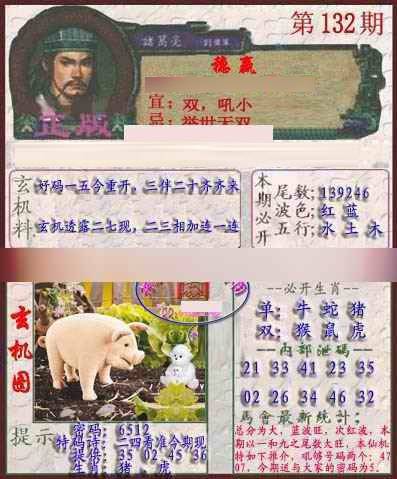 第132期
諸葛亮
稳赢
宜：双，吼小
忌：举世无双
正版
玄机料
好码一五今重开，三伴二十齐齐来
玄机透露二七现，二三相加连一连
本期必开
尾数：139246
波色：红 蓝
五行：水 土 木
玄机图
--必开生肖--
单：牛 蛇 猪
双：猴 鼠 虎
--内部泄码--
21 33 41 23 35
02 26 34 46 32
馬會最新统计：
总分为大，蓝波旺，次红波，本
期以一和九之尾数大旺，本仙机
特如下推介，吼够号码两个：47
07，今期送与大家的密码为5．
提示
密码：6512
特码诗：二四看准今期现
提供：35 02 45 36
生肖：猪．虎